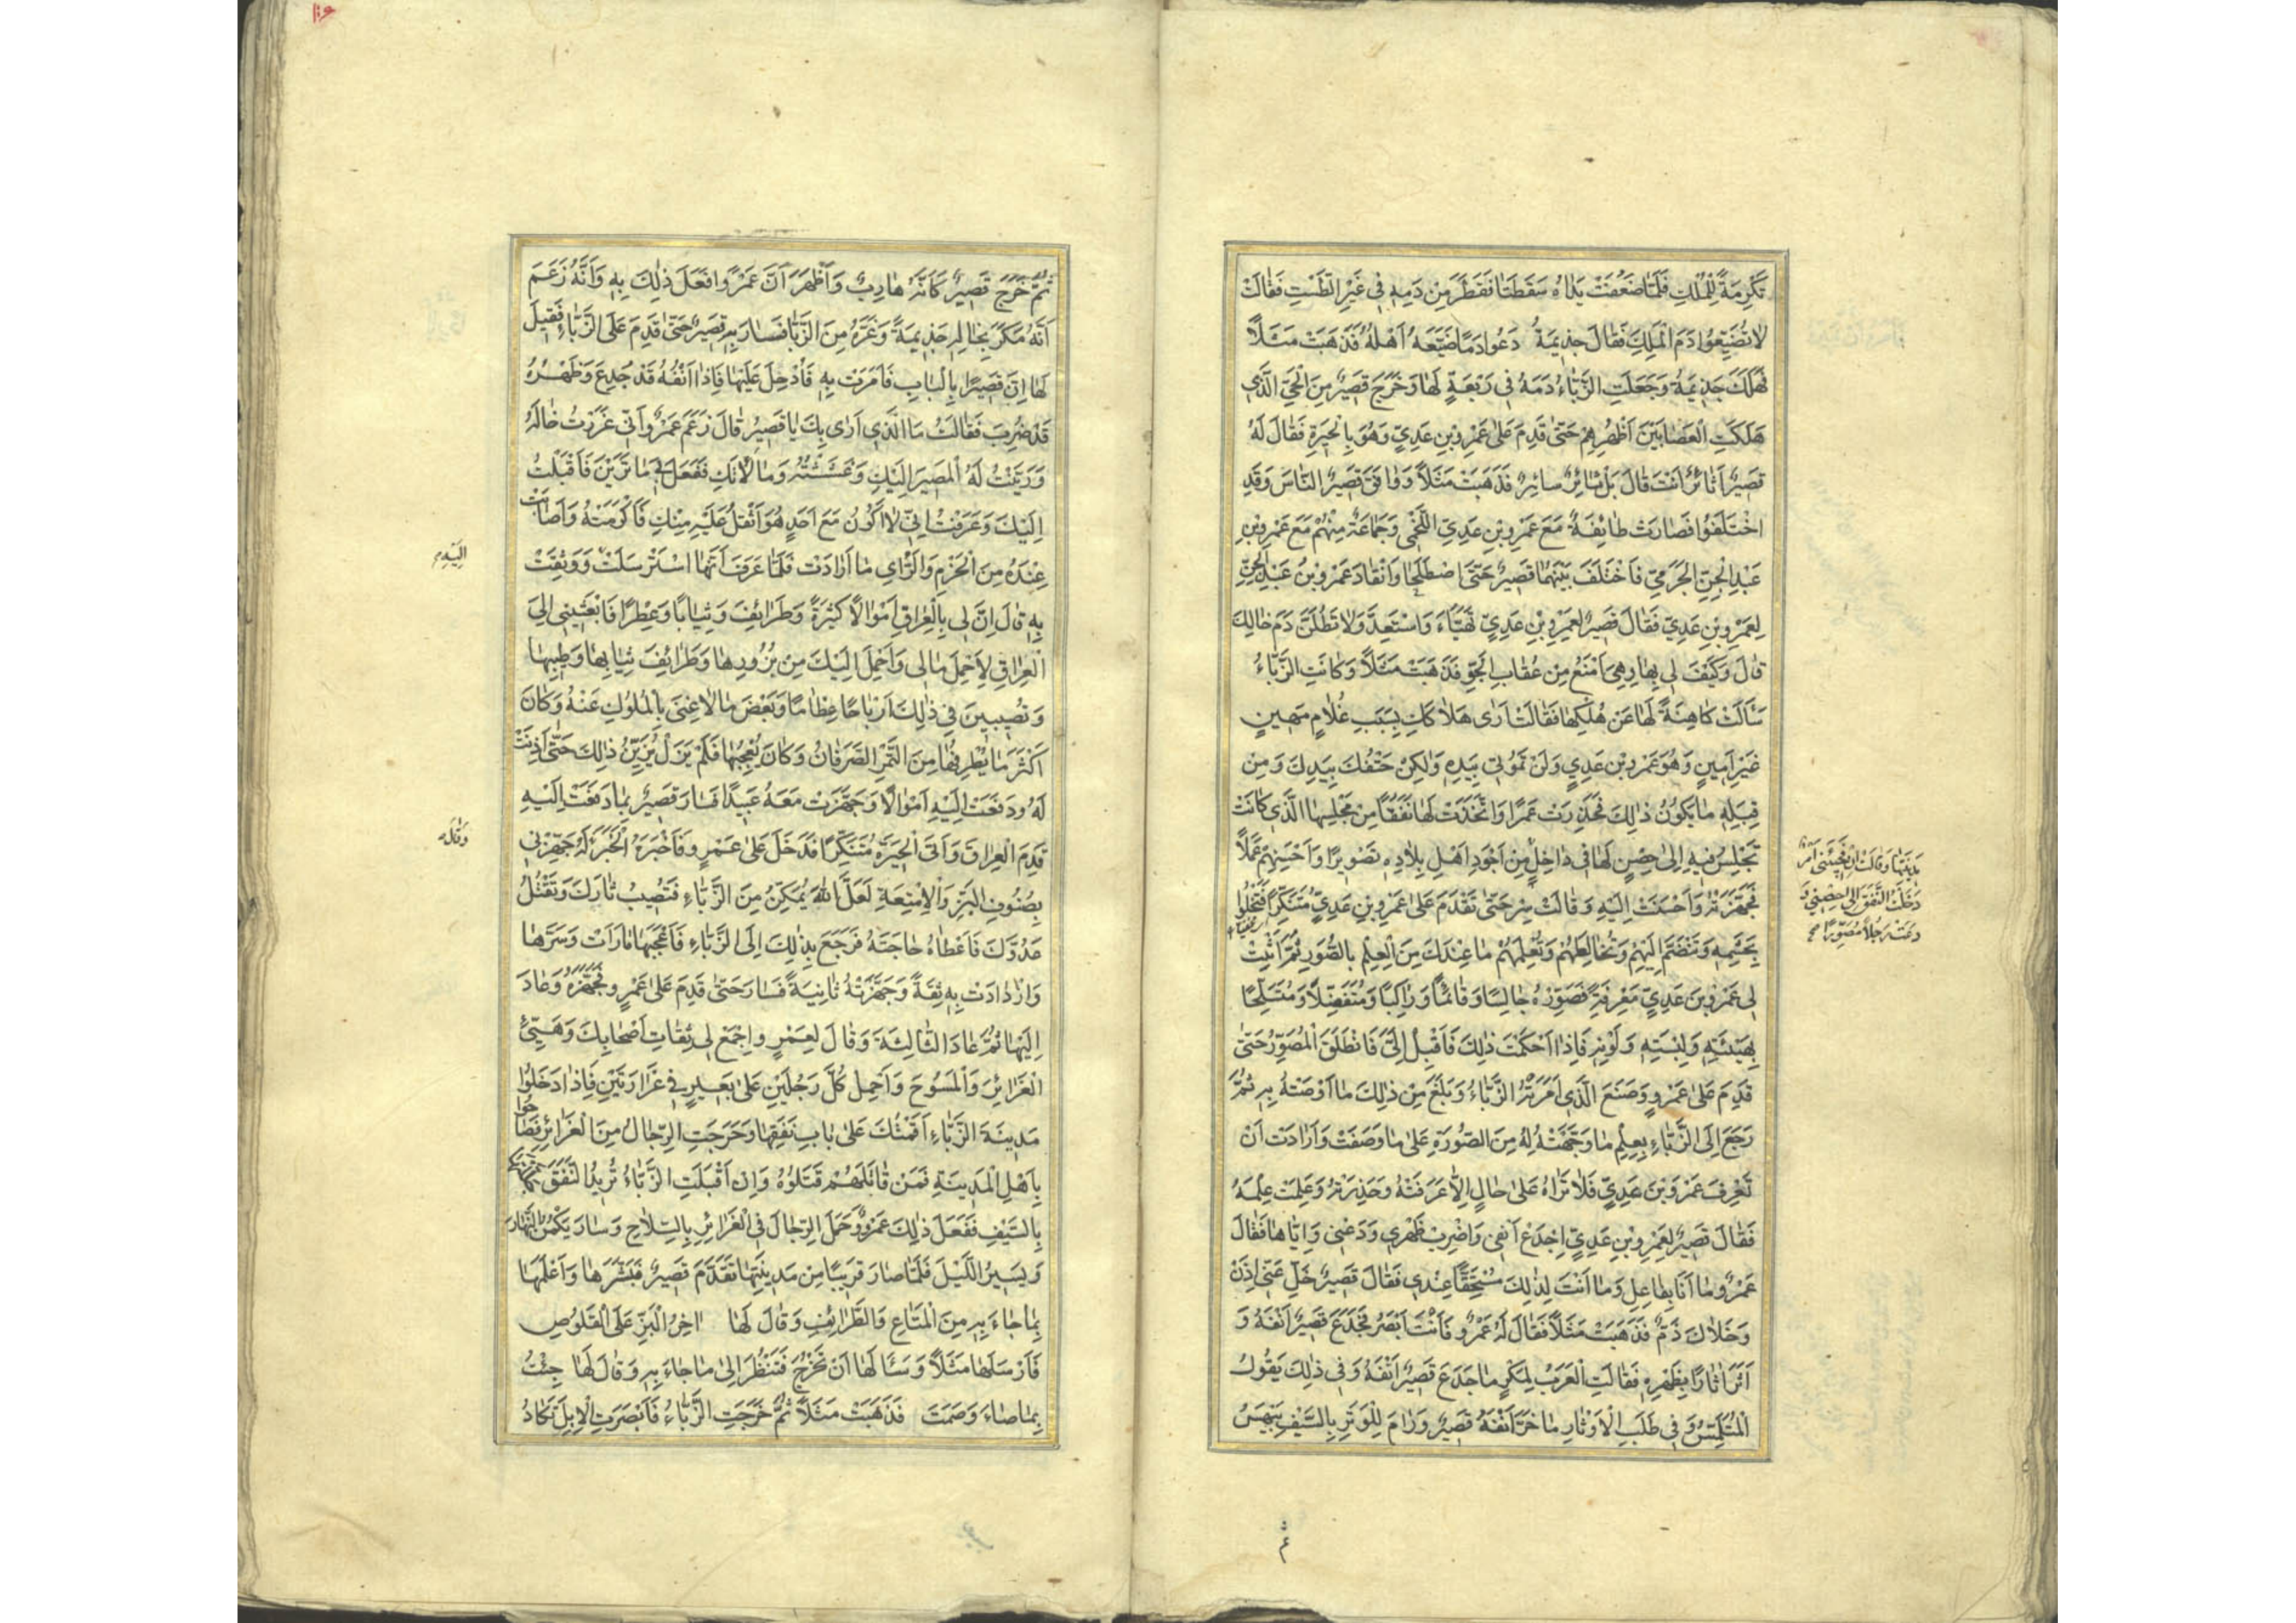 تَكْرِمَةً لِلْمَلِكِ فَلَمَّا ضَعُفَتْ يَدَاهُ سَقَطَتَا فَقَطَرَ مِنْ دَمِهِ فِي غَيْرِ الطَّسْتِ فَقَالَتْ
لَا تُضَيِّعُوا دَمَ الْمَلِكِ فَقَالَ جَذِيمَةُ دَعُوا دَمًا ضَيَّعَهُ أَهْلُهُ فَذَهَبَتْ مَثَلًا
فَهَلَكَ جَذِيمَةُ وَجَعَلَتِ الزَّبَّاءُ دَمَهُ فِي رَبْعَةٍ لَهَا وَخَرَجَ قَصِيرٌ مِنَ الْحَيِّ الَّذِي
هَلَكَتِ الْعَصَا بَيْنَ أَظْهُرِهِمْ حَتَّى قَدِمَ عَلَى عَمْرِو بْنِ عَدِيٍّ وَهُوَ بِالْحِيرَةِ فَقَالَ لَهُ
قَصِيرٌ أَثَائِرٌ أَنْتَ قَالَ بَلْ ثَائِرٌ سَائِرٌ فَذَهَبَتْ مَثَلًا وَوَافَقَ قَصِيرٌ النَّاسَ وَقَدِ
اخْتَلَفُوا فَصَارَتْ طَائِفَةٌ مَعَ عَمْرِو بْنِ عَدِيِّ اللَّخْمِيِّ وَجَمَاعَةٌ مِنْهُمْ مَعَ عَمْرِو بْنِ
عَبْدِ الْجِنِّ الْجَرْمِيِّ فَاخْتَلَفَ بَيْنَهُمَا قَصِيرٌ حَتَّى اصْطَلَحَا وَانْقَادَ عَمْرُو بْنُ عَبْدِ الْجِنِّ
لِعَمْرِو بْنِ عَدِيٍّ فَقَالَ قَصِيرٌ لِعَمْرِو بْنِ عَدِيٍّ تَهَيَّأْ وَاسْتَعِدَّ وَلَا تُطِلَّنَّ دَمَ خَالِكَ
قَالَ وَكَيْفَ لِي بِهَا وَهِيَ أَمْنَعُ مِنْ عُقَابِ الْجَوِّ فَذَهَبَتْ مَثَلًا وَكَانَتِ الزَّبَّاءُ
سَأَلَتْ كَاهِنَةً لَهَا عَنْ هُلْكِهَا فَقَالَتْ أَرَى هَلَاكَكِ بِسَبَبِ غُلَامٍ مَهِينٍ
غَيْرِ أَمِينٍ وَهُوَ عَمْرُو بْنُ عَدِيٍّ وَلَنْ تَمُوتِي بِيَدِهِ وَلَكِنْ حَتْفُكِ بِيَدِكِ وَمِنْ
قِبَلِهِ مَا يَكُونُ ذَلِكَ فَحَذِرَتْ عَمْرًا وَاتَّخَذَتْ لَهَا نَفَقًا مِنْ مَجْلِسِهَا الَّذِي كَانَتْ
تَجْلِسُ فِيهِ إِلَى حِصْنٍ لَهَا فِي دَاخِلِ مِنْ أَجْوَدِ أَهْلِ بِلَادِهِ تَصْوِيرًا وَأَحْسَنِهِمْ عَمَلًا
مَدِينَتِهَا وَقَالَتْ إِنْ فَجِئَنِي أَمْرٌ
دَخَلْتُ النَّفَقَ إِلَى حِصْنِي وَ
دَعَتْ رَجُلًا مُصَوِّرًا صح
فَجَهَّزَتْهُ وَأَحْسَنَتْ إِلَيْهِ وَقَالَتْ سِرْ حَتَّى تَقْدَمَ عَلَى عَمْرِو بْنِ عَدِيٍّ مُتَنَكِّرًا فَتَخْلُو
بِحَشَمِهِ وَتَنْضَمَّ إِلَيْهِمْ وَتُخَالِطَهُمْ وَتُعْلِمَهُمْ مَا عِنْدَكَ مِنَ الْعِلْمِ بِالصُّوَرِ ثُمَّ أَثْبِتْ
لِي عَمْرَو بْنَ عَدِيٍّ مَعْرِفَةً فَصَوِّرْهُ جَالِسًا وَقَائِمًا وَرَاكِبًا وَمُتَفَضِّلًا وَمُتَسَلِّحًا
بِهَيْئَتِهِ وَلِبْسَتِهِ وَلَوْنِهِ فَإِذَا أَحْكَمْتَ ذَلِكَ فَأَقْبِلْ إِلَيَّ فَانْطَلَقَ الْمُصَوِّرُ حَتَّى
قَدِمَ عَلَى عَمْرٍو وَصَنَعَ الَّذِي أَمَرَتْهُ الزَّبَّاءُ وَبَلَغَ مِنْ ذَلِكَ مَا أَوْصَتْهُ بِهِ ثُمَّ
رَجَعَ إِلَى الزَّبَّاءِ بِعِلْمِ مَا وَجَّهَتْهُ لَهُ مِنَ الصُّورَةِ عَلَى مَا وَصَفَتْ وَأَرَادَتْ أَنْ
تَعْرِفَ عَمْرَو بْنَ عَدِيٍّ فَلَا تَرَاهُ عَلَى حَالٍ إِلَّا عَرَفَتْهُ وَحَذِرَتْهُ وَعَلِمَتْ عِلْمَهُ
فَقَالَ قَصِيرٌ لِعَمْرِو بْنِ عَدِيٍّ اجْدَعْ أَنْفِي وَاضْرِبْ ظَهْرِي وَدَعْنِي وَإِيَّاهَا فَقَالَ
عَمْرٌو مَا أَنَا بِفَاعِلٍ وَمَا أَنْتَ لِذَلِكَ مُسْتَحِقًّا عِنْدِي فَقَالَ قَصِيرٌ خَلِّ عَنِّي إِذَنْ
وَخَلَاكَ ذَمٌّ فَذَهَبَتْ مَثَلًا فَقَالَ لَهُ عَمْرٌو فَأَنْتَ أَبْصَرُ فَجَدَعَ قَصِيرٌ أَنْفَهُ وَ
أَثَّرَ آثَارًا بِظَهْرِهِ فَقَالَتِ الْعَرَبُ لِمَكْرٍ مَا جَدَعَ قَصِيرٌ أَنْفَهُ وَفِي ذَلِكَ يَقُولُ
الْمُتَلَمِّسُ وَفِي طَلَبِ الْأَوْتَارِ مَا حَزَّ أَنْفَهُ قَصِيرٌ وَرَامَ لِلْوَتْرِ بِالسَّيْفِ بَيْهَسُ
ثم
ثُمَّ خَرَجَ قَصِيرٌ كَأَنَّهُ هَارِبٌ وَأَظْهَرَ أَنَّ عَمْرًوا فَعَلَ ذَلِكَ بِهِ وَأَنَّهُ زَعَمَ
أَنَّهُ مَكَرَ بِخَالِهِ جَذِيمَةَ وَغَرَّهُ مِنَ الزَّبَّا فَسَارَ بِهِ قَصِيرٌ حَتَّى قَدِمَ عَلَى الزَّبَّاءِ فَقِيلَ
لَهَا إِنَّ قَصِيرًا بِالْبَابِ فَأَمَرَتْ بِهِ فَأُدْخِلَ عَلَيْهَا فَإِذَا أَنْفُهُ قَدْ جُدِعَ وَظَهْرُهُ
قَدْ ضُرِبَ فَقَالَتْ مَا الَّذِي أَرَى بِكَ يَا قَصِيرُ قَالَ زَعَمَ عَمْرٌو أَنِّي غَرَرْتُ خَالَهُ
وَزَيَّنْتُ لَهُ الْمَصِيرَ إِلَيْكِ وَغَشَشْتُهُ وَمَالَأْتُكِ فَفَعَلَ بِي مَا تَرَيْنَ فَأَقْبَلْتُ
إِلَيْكَ وَعَرَفْتُ أَنِّي لَا أَكُونُ مَعَ أَحَدٍ هُوَ أَثْقَلُ عَلَيْهِ مِنْكِ فَأَكْرَمَتْهُ وَأَصَابَتْ
عِنْدَهُ مِنَ الْحَزْمِ وَالرَّأْيِ مَا أَرَادَتْ فَلَمَّا عَرَفَ أَنَّهَا اسْتَرْسَلَتْ وَوَثِقَتْ
بِهِ قَالَ إِنَّ لِي بِالْعِرَاقِ أَمْوَالًا كَثِيرَةً وَطَرَائِفَ وَثِيَابًا وَعِطْرًا فَابْعَثِينِي إِلَى
الْعِرَاقِ لِأَحْمِلَ مَالِي وَأَحْمِلَ إِلَيْكَ مِنْ بُزُورِهَا وَطَرَائِفَ ثِيَابِهَا وَطِيبِهَا
وَتُصِيبِينَ فِي ذَلِكَ أَرْبَاحًا عِظَامًا وَبَعْضَ مَا لَا غِنَى بِالْمُلُوكِ عَنْهُ وَكَانَ
أَكْثَرَ مَا يُطْرِفُهَا مِنَ التَّمْرِ الصَّرَفَانُ وَكَانَ يُعْجِبُهَا فَلَمْ يَزَلْ يُزَيِّنُ ذَلِكَ حَتَّى أَذِنَتْ
لَهُ وَدَفَعَتْ إِلَيْهِ أَمْوَالًا وَجَهَّزَتْ مَعَهُ عَبِيدًا فَسَارَ قَصِيرٌ بِمَا دَفَعَتْ إِلَيْهِ
قَدِمَ الْعِرَاقَ وَأَتَى الْحِيرَةَ مُتَنَكِّرًا فَدَخَلَ عَلَى عَمْرٍو فَأَخْبَرَهُ الْخَبَرَ لَهُ جَهِّزْنِي
وَقَالَ
بِصُنُوفِ الْبَزِّ وَالْأَمْتِعَةِ لَعَلَّ اللَّهَ يُمَكِّنُ مِنَ الزَّبَّاءِ فَتُصِيبُ ثَارَكَ وَتَقْتُلُ
عَدُوَّكَ فَأَعْطَاهُ حَاجَتَهُ فَرَجَعَ بِذَلِكَ إِلَى الزَّبَّاءِ فَأَعْجَبَهَا مَا رَأَتْ وَسَرَّهَا
وَازْدَادَتْ بِهِ ثِقَةً وَجَهَّزَتْهُ ثَانِيَةً فَسَارَ حَتَّى قَدِمَ عَلَى عَمْرٍو فَجَهَّزَهُ وَعَادَ
إِلَيْهَا ثُمَّ عَادَ الثَّالِثَةَ وَقَالَ لِعَمْرٍو اجْمَعْ لِي ثِقَاتِ أَصْحَابِكَ وَهَيِّئْ
الْغَرَائِرَ وَالْمُسُوحَ وَاحْمِلْ كُلَّ رَجُلَيْنِ عَلَى بَعِيرٍ فِي غَرَارَتَيْنِ فَإِذَا دَخَلُوا
مَدِينَةَ الزَّبَّاءِ أَقَمْتُكَ عَلَى بَابِ نَفَقِهَا وَخَرَجَتِ الرِّجَالُ مِنَ الْغَرَائِرِ فَصَاحُوا
بِأَهْلِ الْمَدِينَةِ فَمَنْ قَاتَلَهُمْ قَتَلُوهُ وَإِنْ أَقْبَلَتِ الزَّبَّاءُ تُرِيدُ النَّفَقَ
بِالسَّيْفِ فَفَعَلَ ذَلِكَ عَمْرٌو وَحَمَلَ الرِّجَالَ فِي الْغَرَائِرِ بِالسِّلَاحِ وَسَارَ يَكْمُنُ النَّهَارَ
وَيَسِيرُ اللَّيْلَ فَلَمَّا صَارَ قَرِيبًا مِنْ مَدِينَتِهَا تَقَدَّمَ قَصِيرٌ فَبَشَّرَهَا وَأَعْلَمَهَا
بِمَا جَاءَ بِهِ مِنَ الْمَتَاعِ وَالطَّرَائِفِ وَقَالَ لَهَا آخِرُ الْبَزِّ عَلَى الْقَلُوصِ
فَأَرْسَلَهَا مَثَلًا وَسَأَلَهَا أَنْ تَخْرُجَ فَتَنْظُرَ إِلَى مَا جَاءَ بِهِ وَقَالَ لَهَا جِئْتُ
بِمَا صَاءَ وَصَمَتَ فَذَهَبَتْ مَثَلًا ثُمَّ خَرَجَتِ الزَّبَّاءُ فَأَبْصَرَتِ الْإِبِلَ تَكَادُ